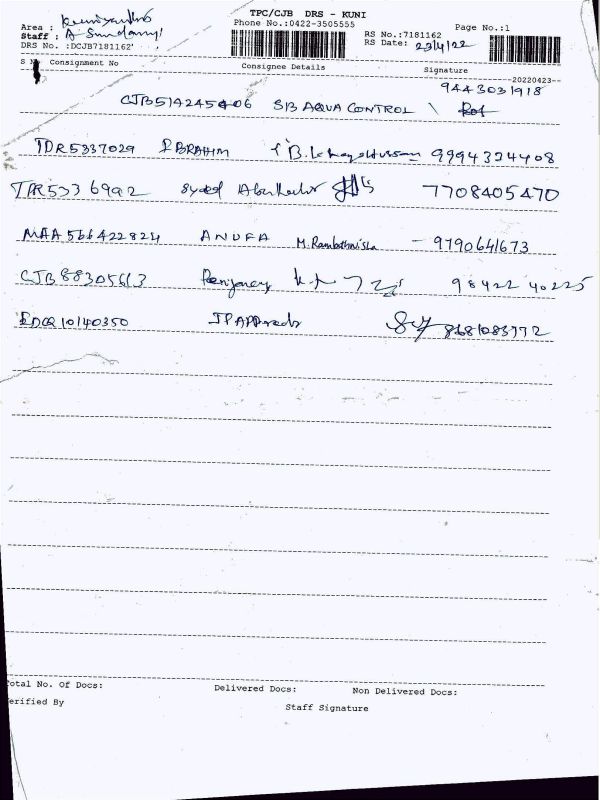 TPC/CJB DRS - KUNI
Phone No.:0422-3505555
Page No.:1
Area :
Staff : A
RS No.:7181162
DRS No. :DCJB7181162
RS Date: 23/4/22
S N Consignment No Consignee Details Signature
--20220423--
9443031918
CJB514245406 SB AQUA CONTROL
TDR5337029 IBRAHIM 9994324408
TPR5336992 Syed 7708405470
MAA566422824 ANUFA - 9790641673
CJB88305613 98422 40225
EDQ10140350 JP Apparels 8681083772
Total No. Of Docs: Delivered Docs: Non Delivered Docs:
Verified By Staff Signature